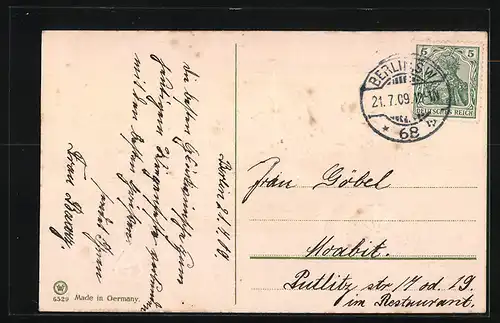 Berlin 21.7.09
Die besten Glückwünsche zum
heutigen
mit den besten Grüßen
Frau
Frau Göbel
Moabit.
Putlitz str 17 od. 19
im Restaurant.
BERLIN SW
21.7.09.
* 68
5 5
DEUTSCHES REICH
6529 Made in Germany.